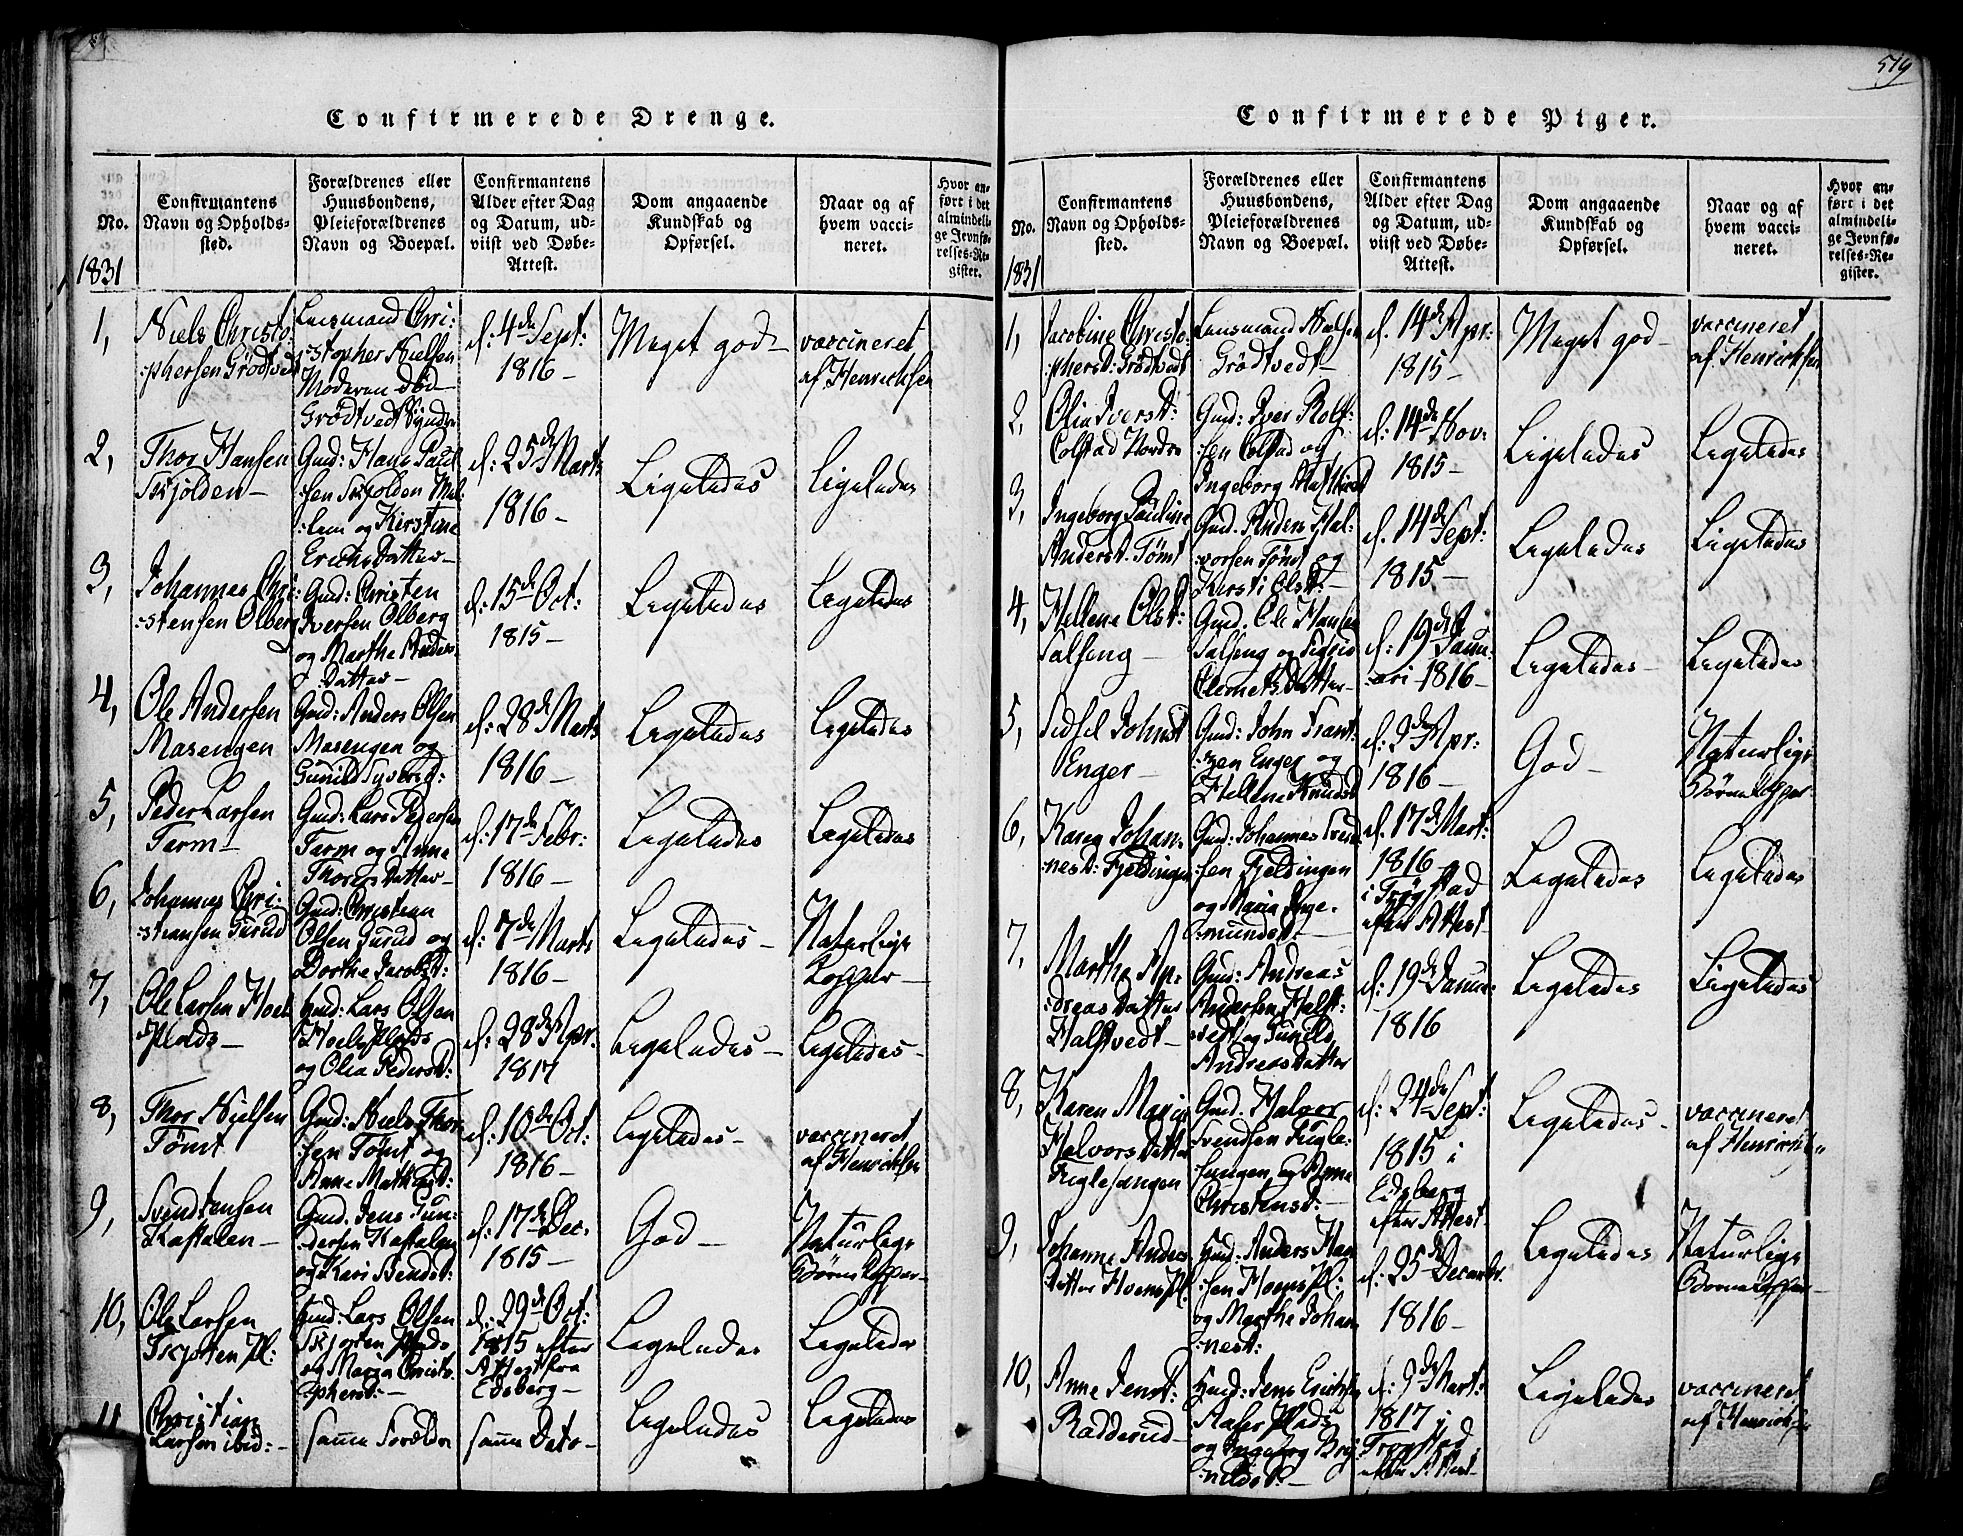 519
Confirmerede Drenge.
No.
Confirmantens
Navn og Opholds-
sted.
Forældrenes eller
Huusbondens,
Pleieforældrenes
Navn og Boepæl.
Confirmantens
Alder efter Dag
og Datum, ud-
viist ved Døbe-
Attest.
Dom angaaende
Kundskab og
Opførsel.
Naar og af
hvem vacci-
neret.
Hvor an-
ført i det
almindeli-
ge Jevnfø-
relses-Re-
gister.
1831
1,
Niels Christo
:phersen Grödtvedt
Lensmand Chri:
:stopher Nielsen
Moderen död
Grödtvedt Syndre
d: 4de Sept:
1816 –
Meget god –
vaccineret
af Henrichsen
2,
Thor Hansen
Skjolden –
Gmd: Hans Poul
:sen Skjolden Mel
:lem og Kirstine
Erichs Datter –
d: 25de Marts
1816 –
Ligeledes
Ligeledes
3,
Johannes Chri:
:stensen Olberg
Gmd: Christen
Iversen Olberg
og Marthe Anders
Datter –
d: 15de Oct:
1815 –
Ligeledes
Ligeledes
4,
Ole Andersen
Masengen
Gmd: Anders Olsen
Masengen og
Gunild Syversd:
d: 28de Marts
1816 –
Ligeledes
Ligeledes
5,
Peder Larsen
Term –
Gmd: Lars Pedersen
Term og Anne
Thores Datter –
d: 17de Febr:
1816 –
Ligeledes
Ligeledes
6,
Johannes Chri:
:stiansen Turud
Gmd: Christian
Olsen Turud og
Dorthe Jacobsd:
d: 7de Marts
1816 –
Ligeledes –
Naturlige
Kopper –
7,
Ole Larsen Hoel
Plads –
Hmd: Lars Olsen
Hoels Plads
og Olea Pedersd:
d: 28de Apr:
1817
Ligeledes –
Ligeledes –
8,
Thor Nielsen
Tömt
Gmd: Niels Thor
:sen Tömt og
Anne Mathisd:
d: 10de Oct:
1816 –
Ligeledes –
vaccineret
af Henrichsen
9,
Svend Jensen
Kastalen –
Gmd. Jens Gun:
:dersen Kastalen
og Kari Svendsd:
d: 17de Dec.
1815 –
God –
Naturlige
Börne Kopper –
10,
Ole Larsen
Skjotten Pl:
Hmd: Lars Olsen
Skjotten Plads
og Maria Christo
:phersd: –
d. 29de Oct:
1815 efter
Attest fra
Edsberg –
Ligeledes
Ligeledes
11
Christian
Larsen ibid: –
samme Forældre
samme Dato –
Ligeledes
Ligeledes
Confirmerede Piger.
No.
Confirmantens
Navn og Opholds-
sted.
Forældrenes eller
Huusbondens,
Pleieforældrenes
Navn og Boepæl.
Confirmantens
Alder efter Dag
og Datum, ud-
viist ved Døbe-
Attest.
Dom angaaende
Kundskab og
Opførsel.
Naar og af
hvem vacci-
neret.
Hvor an-
ført i det
almindeli-
ge Jevnfø-
relses-Re-
gister.
1831
1,
Jacobine Christo:
:phersd: Grödtvedt
Lensmand Nielsen
Grödtvedt –
d. 14de Apr:
1815 –
Meget god –
vaccineret
af Henrichsen
2,
Olia Iversd:
Colstad Nordre
Gmd: Iver Rolf:
:sen Colstad og
Ingeborg
d: 14de Nov:
1815 –
Ligeledes
Ligeledes
3,
Ingeborg Pauline
Andersd. Tömt
Gmd. Anders Hal:
:vorsen Tömt og
Kirsti Olsd: –
d. 14de Sept:
1815 –
Ligeledes
Ligeledes
4,
Hellene Olsd:
Salseng –
Gmd. Ole Hansen
Salseng og Sigrid
Clemets Datter –
d: 19de Janu:
:ari 1816 –
Ligeledes –
Ligeledes
5,
Sidsel Johnsd
Enger –
Gmd: John Frant:
:zen Enger og
Hellene Knudsd
d: 2de Apr:
1816 –
God –
Naturlige
Börne Kopper
6,
Karen Johan:
:nesd: Fjeldingen
Gmd: Johannes Svend
:sen Fjeldingen
og Maria Inge:
:mundsd –
d. 17de Mart:
1816
i Trögstad
efter Attest
Ligeledes
Ligeledes
7,
Marthe An:
:dreas Datter
Halstvedt –
Gmd: Andreas
Andersen Halst:
:vedt og Gunild
Andreas Datter
d: 19de Janu:
1816
Ligeledes
Ligeledes
8,
Karen Maria
Halvors Datter
Fuglesangen
Gmd. Halvor
Svendsen Fugle:
:sangen og Anne
Christensd: –
d: 24de Sept:
1815 i
Edsberg
efter Attest
Ligeledes –
vaccineret
af Henrichsen
9,
Johanne Anders
Datter Hoens Pl:
Hmd: Anders Han
:sen Hoens Pl:
og Marthe Johan
:nesd:
d: 25de Decembr.
1816 –
Ligeledes
Naturlige
Börne Kopper –
10,
Anne Jensd:
Radderud –
Hmd: Jens Erichsen
Aaser Plads
og Ingeborg Bry
:nildsd: –
d: 9de Mart:
1817 i
efter Attest –
Ligeledes
vaccineret
af Henrichsen